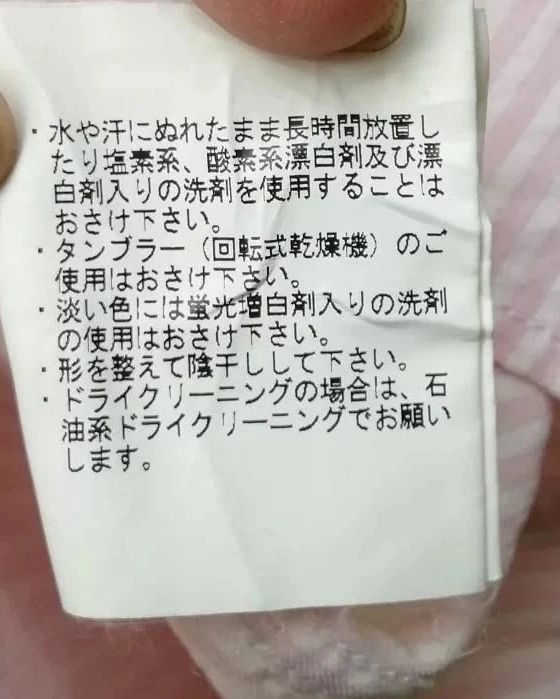 ・水や汗にぬれたまま長時間放置し
たり塩素系、酸素系漂白剤及び漂
白剤入りの洗剤を使用することは
おさけ下さい。
・タンブラー（回転式乾燥機）のご
使用はおさけ下さい。
・淡い色には蛍光増白剤入りの洗剤
の使用はおさけ下さい。
・形を整えて陰干しして下さい。
・ドライクリーニングの場合は、石
油系ドライクリーニングでお願い
します。